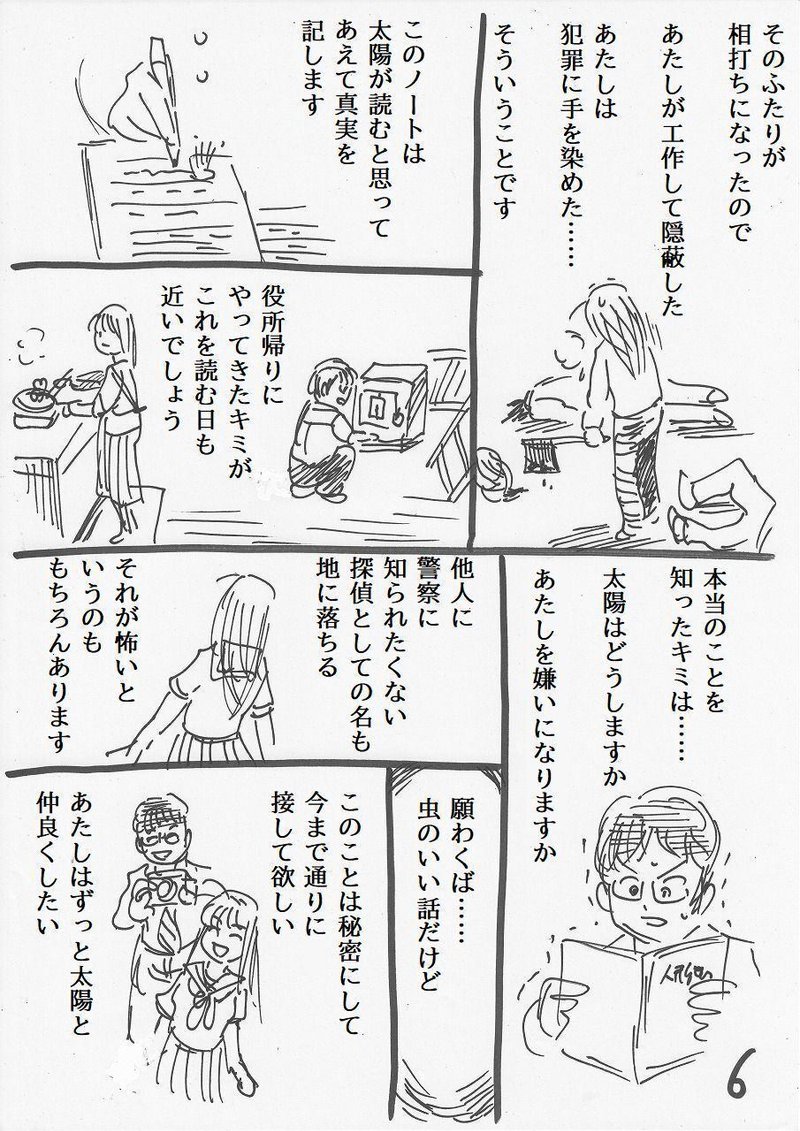 そのふたりが
相打ちになったので
あたしが工作して隠蔽した
あたしは
犯罪に手を染めた……
そういうことです
このノートは
太陽が読むと思って
あえて真実を
記します
役所帰りに
やってきたキミが
これを読む日も
近いでしょう
本当のことを
知ったキミは……
太陽はどうしますか
あたしを嫌いになりますか
他人に
警察に
知られたくない
探偵としての名も
地に落ちる
それが怖いと
いうのも
もちろんあります
願わくば……
虫のいい話だけど
このことは秘密にして
今まで通りに
接して欲しい
あたしはずっと太陽と
仲良くしたい
6